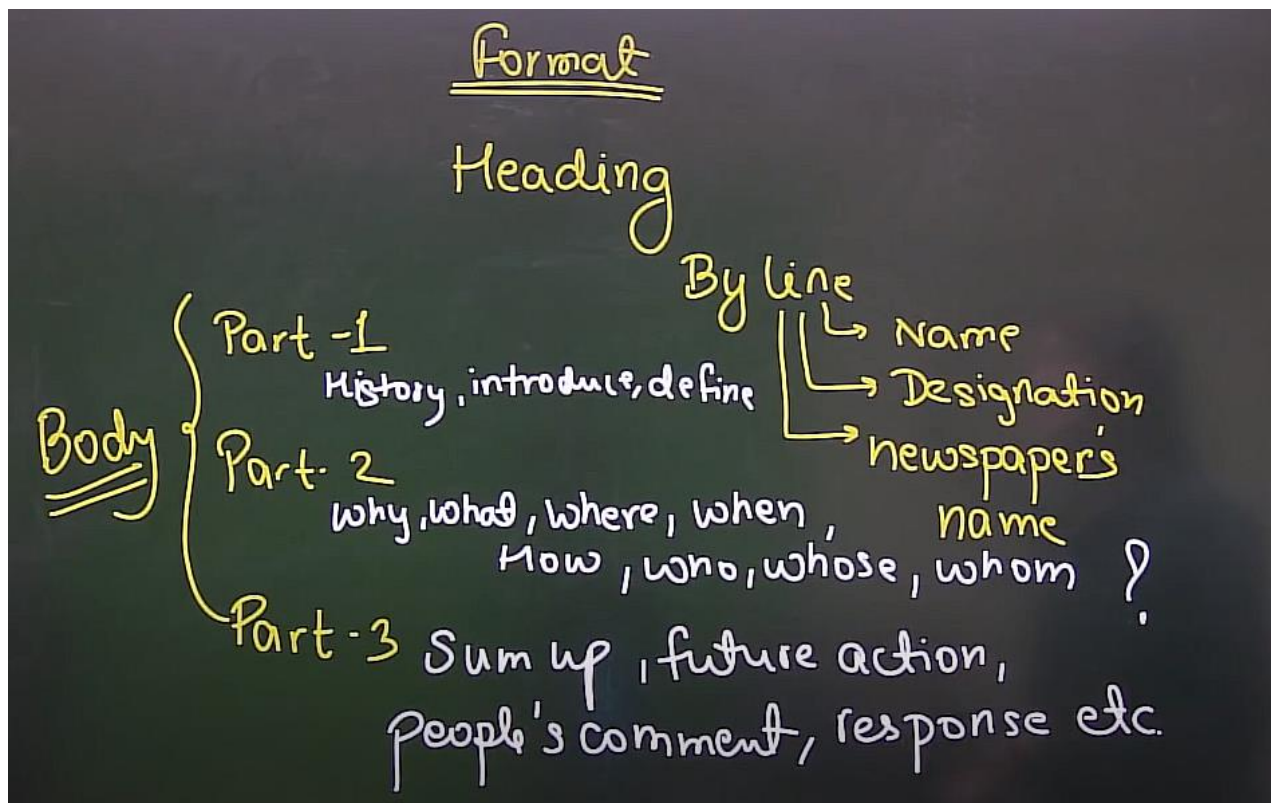 Format
Heading
By line
Name
Designation
newspaper's
name
Body
Part -1
History, introduce, define
Part- 2
Why, what, where, when,
How, who, whose, whom ?
Part-3 Sum up, future action,
people's comment, response etc.